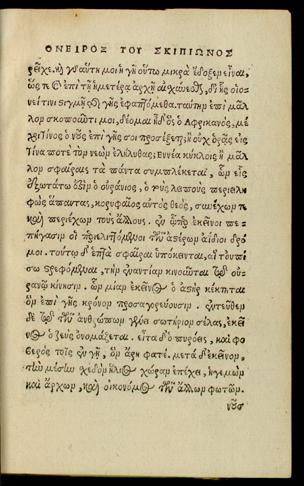 ΟΝΕΙΡΟΣ ΤΟΥ ΣΚΙΠΙΩΝΟΣ
ρεῖχε. καὶ γὰρ αὕτη μοι ἡ γῆ οὕτω μικρὰ ἔδοξεν εἶναι,
ὥστε ἐπὶ τῇ ἡμετέρᾳ ἀρχῇ αἰσχυνθῆναι, δι' ἧς οἱονεὶ
τινι στιγμῆς γῆς ἐφαπτόμεθα. ταύτην ἐπὶ μᾶλ
λον σκοποῦντί μοι, δέομαι ἤδη ὁ Ἀφρικανός, μέ
χρι τίνος ὁ νοῦς ἐπὶ γῆς σοι προσέξει; ἢ οὐχ ὁρᾷς εἰς
τίνα ποτὲ τὸν νεὼν ἐλήλυθας; Ἐννέα κύκλοις ἢ μᾶλ
λον σφαίραις τὰ πάντα συμπλέκεται, ὧν εἷς
ἐξωτάτω ὁ οὐράνιος, ὁ τοὺς λοιποὺς περιειλη
φὼς ἅπαντας, κορυφαῖος αὐτὸς θεός, συνέχων τε
καὶ περιέχων τοὺς ἄλλους. ἐν ᾧπερ ἐκεῖνοι πε
πήγασιν οἱ περιελιττόμενοι τῶν ἀστέρων ἀΐδιοι δρό
μοι. τούτῳ δ' ἑπτὰ σφαῖραι ὑπόκεινται, αἳ τουπί
σω στρεφόμεναι, τὴν ἐναντίαν κινοῦνται τῷ οὐ
ρανῷ κίνησιν. ὧν μίαν ἐκεῖνος ὁ ἀστὴρ κέκτηται
ὃν ἐπὶ γῆς κρόνον προσαγορεύουσιν. ἐντεῦθέν
δὲ τῷ τῶν ἀνθρώπων γένει σωτήριον σέλας, ἐκεῖ
νος ὁ ζεὺς ὀνομάζεται. εἶτα δ' ὁ πυρόεις, καὶ φο
βερὸς τοῖς ἐν γῇ, ὃν ἄρη φατέ. μετὰ δ' ἐκεῖνον,
τὴν μέσην σχεδὸν ἥλιος χώραν ἐπέχει, ἡγεμὼν
καὶ ἄρχων, καὶ οἰκονόμος τῶν ἄλλων φωτῶν.
νοῦς